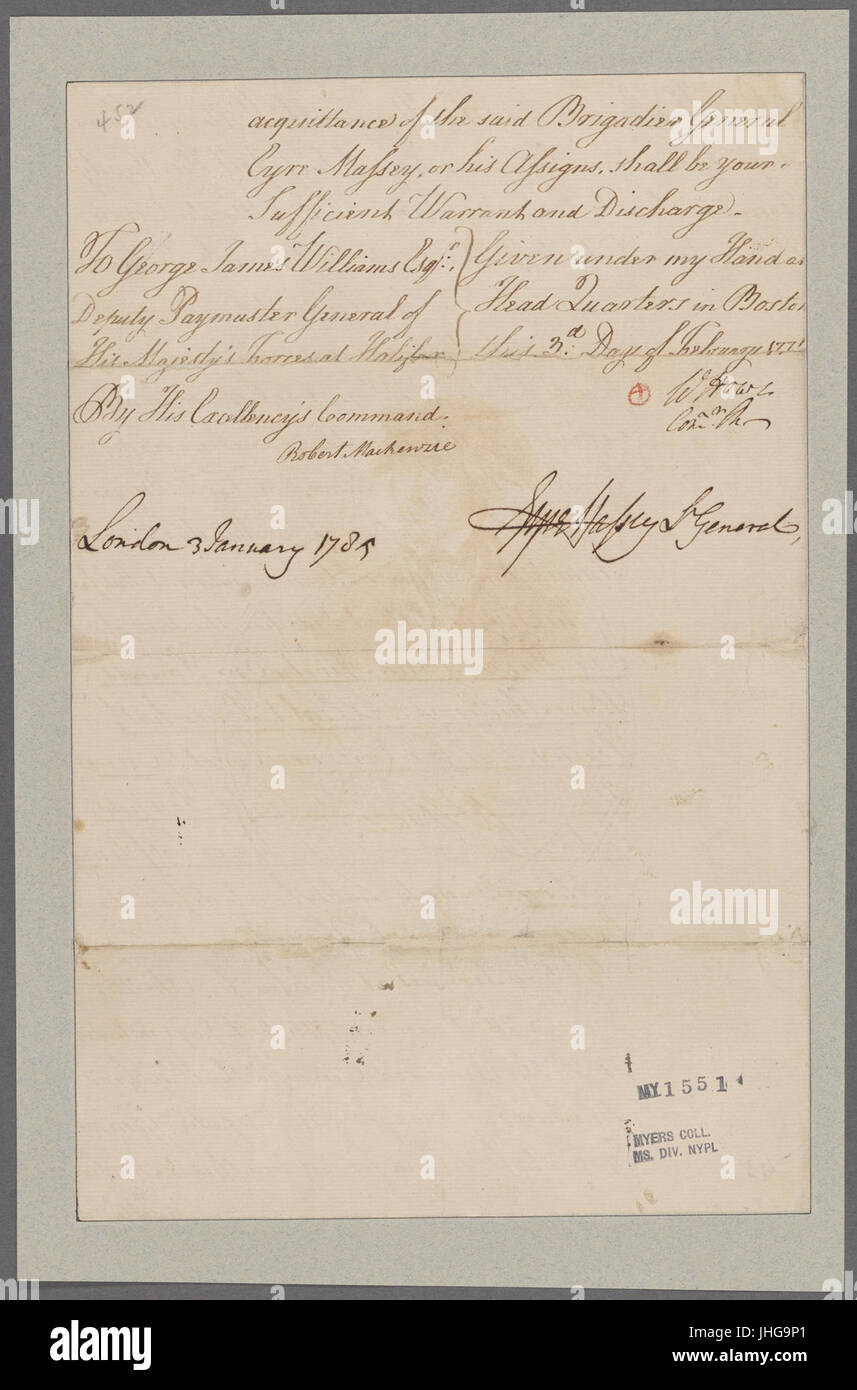 452
acquittance of the said Brigadier General
Eyre Massey, or his Assigns, shall be your
Sufficient Warrant and Discharge.
To George James Williams Esqr.,
Deputy Paymaster General of
His Majesty's Forces at Halifax
Given under my Hand at
Head Quarters in Boston
this 3d. Day of February
By His Excellency's Command.
Robert Mackenzie
W Howe
London 3 January 1785
Eyre Massey Lt General,
MY 1551
MYERS COLL.
MS. DIV. NYPL
alamy
alamy
Image ID: JHG9P1
www.alamy.com